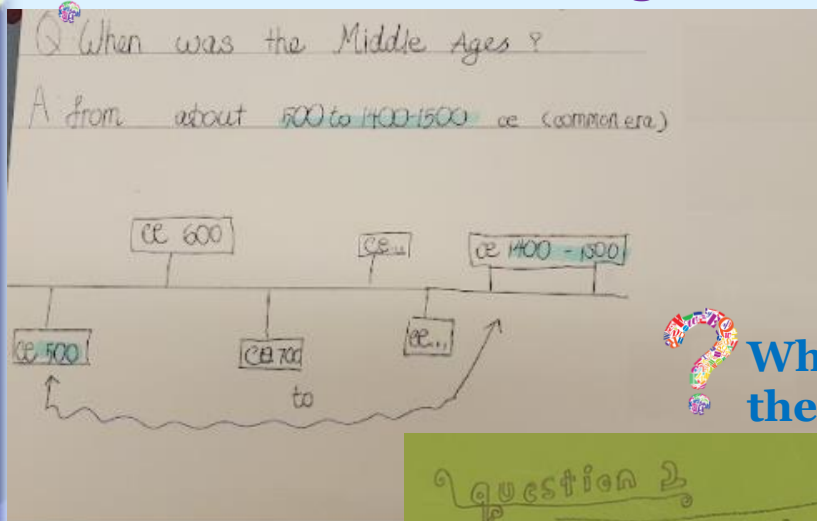 Q When was the Middle Ages?
A from about 500 to 1400-1500 ce (common era)
ce 600
ce..
ce 1400 - 1500
ce 500
ce 700
ce...
to
Wh
the
question 2